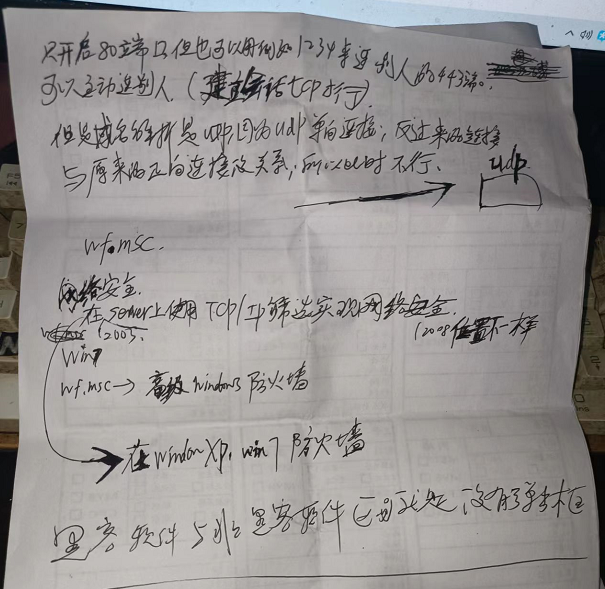 只开启80端口但也可以用例如1234来连别人的443端。
可以主动连别人.(建立会话tcp才行)
但是域名解析是udp,因为udp单向连接;反过来的连接
与原来的正向连接没关系,所以此时不行.
udp
wf.msc.
网络安全.
在server上使用TCP/IP筛选实现网络安全.
(2003.
(2008位置不一样
Win7
wf.msc→高级windows防火墙
在windowXp.win7防火墙
黑客软件与非黑客软件区别就是没有弹出框